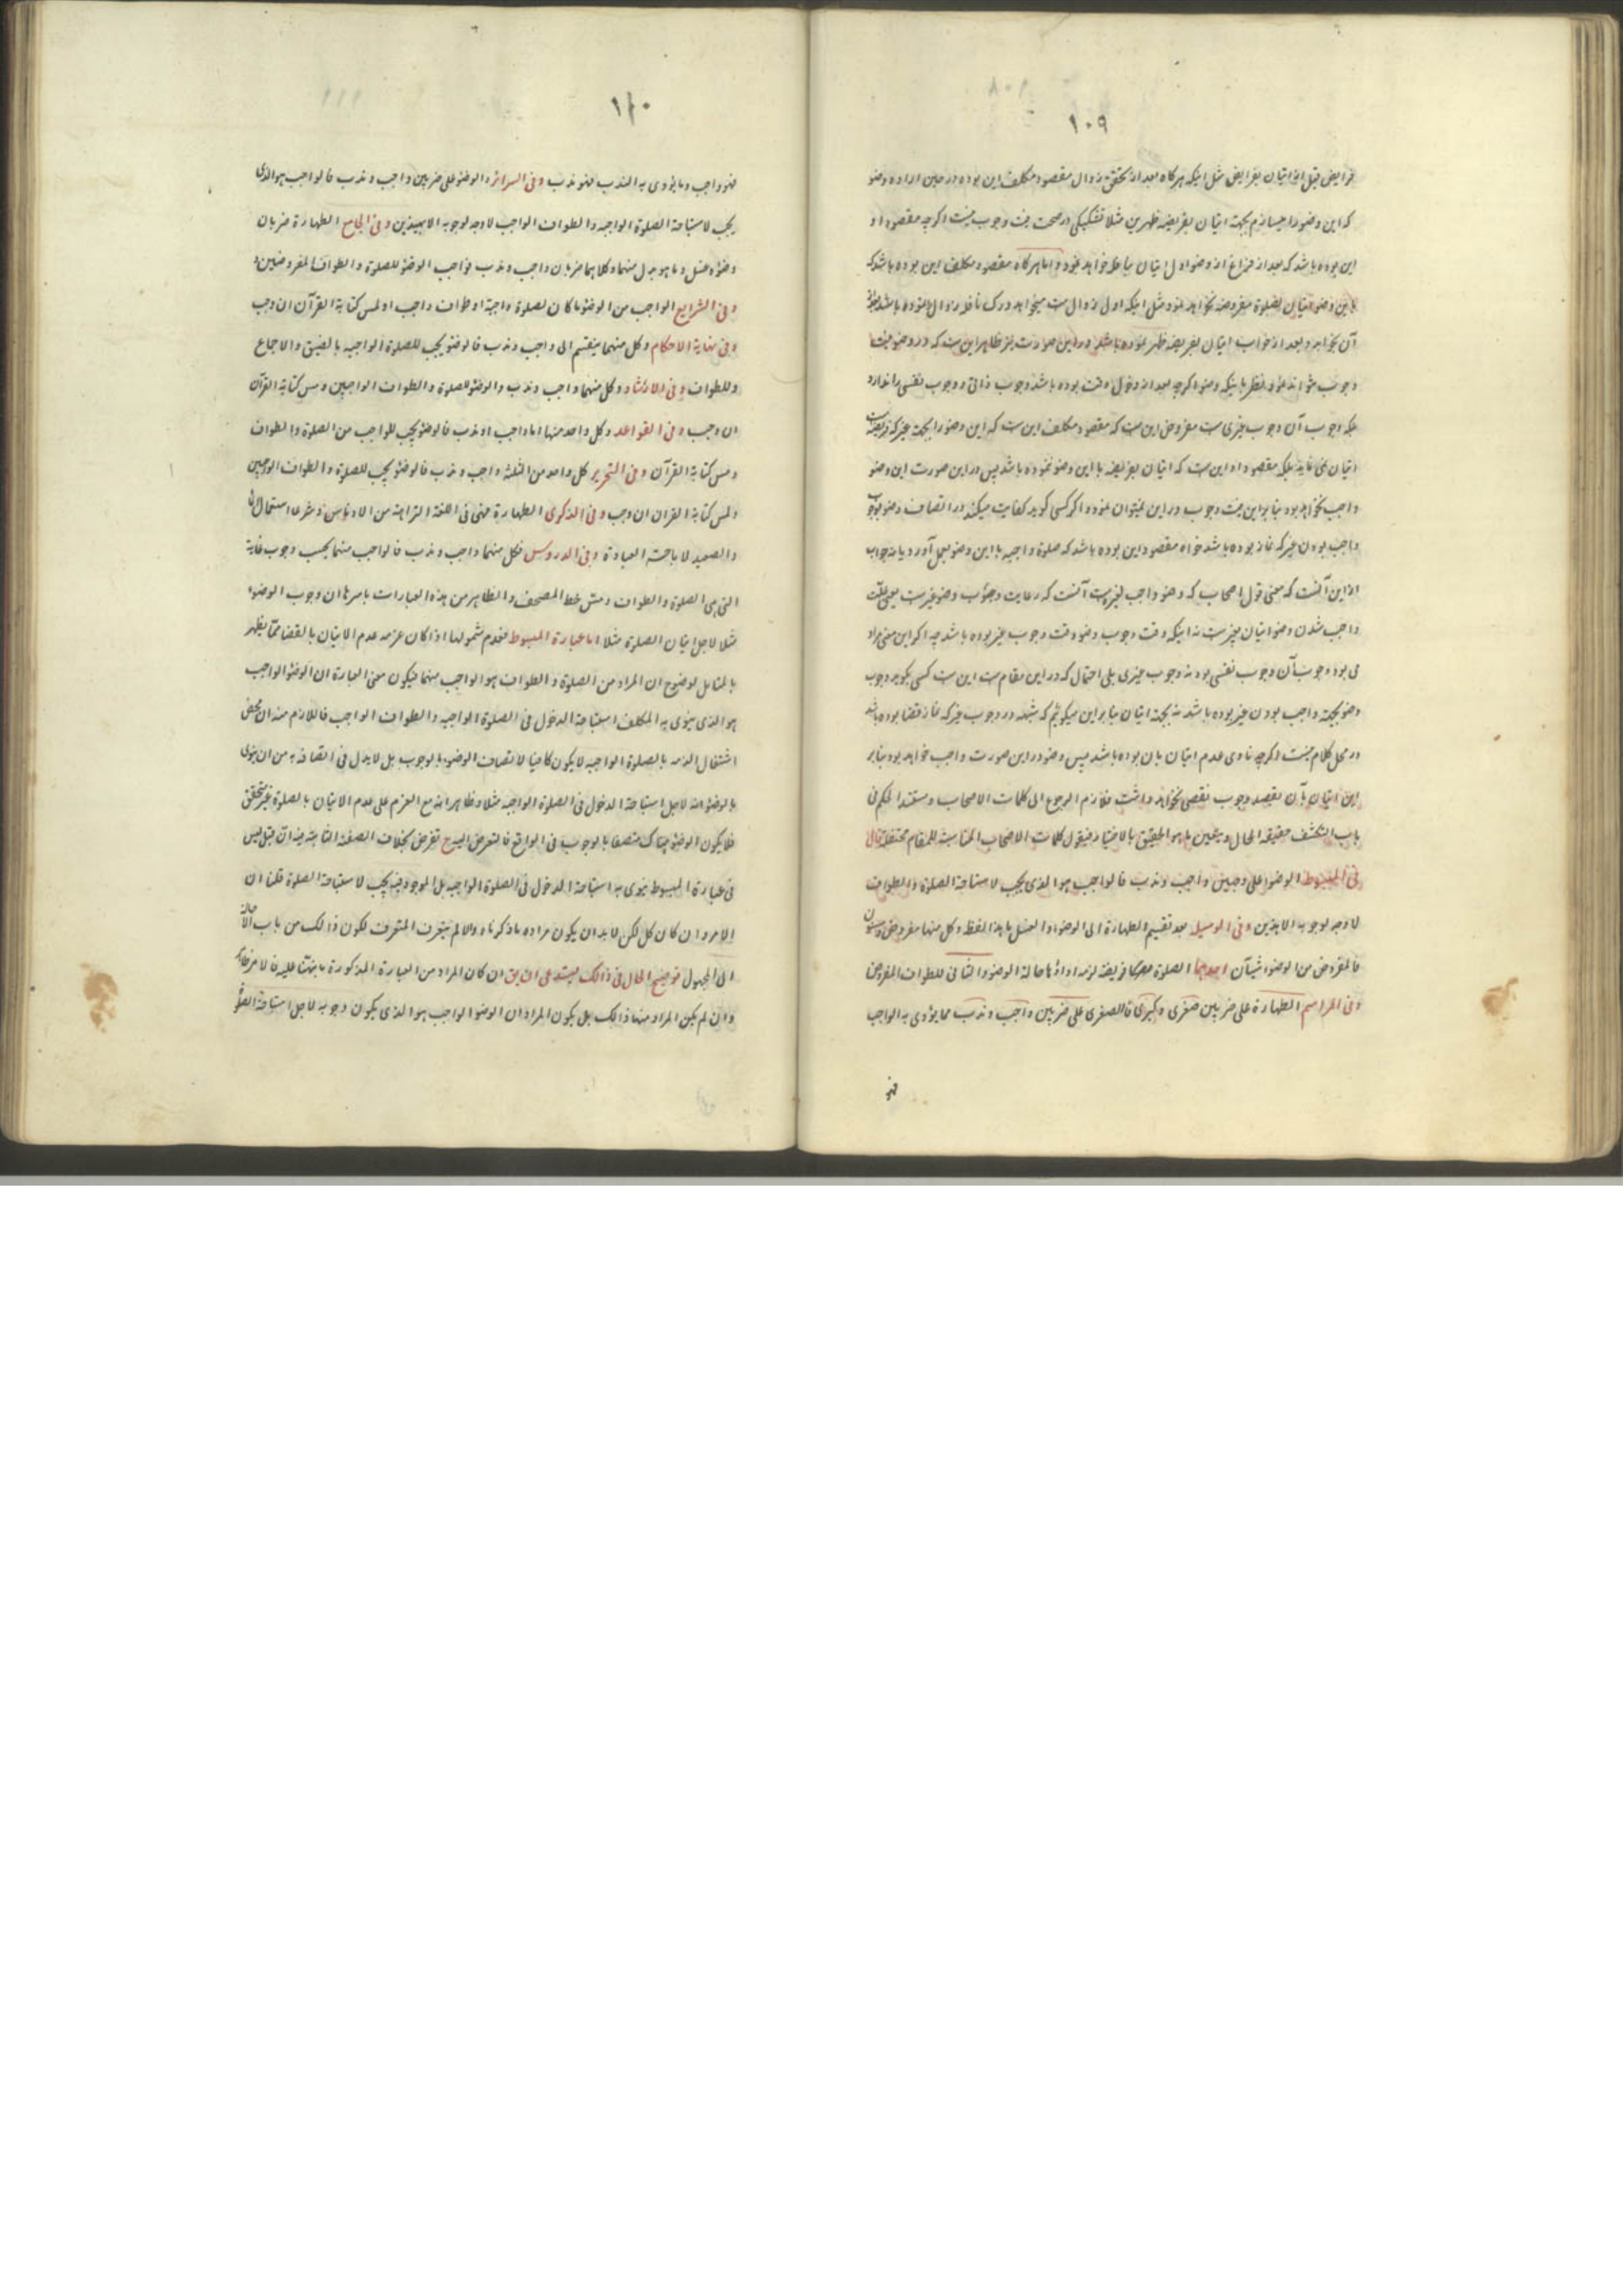 ۱۰۹
فرایض قبل از اتیان بفرایض مثل اینکه هرگاه بعد از تحقق زوال مقصود مکلف این بوده در حین اراده وضو
که این وضو را میسازم بجهة اتیان بفریضه ظهرین مثلا تشکیکی در صحت نیت وجوب نیست اگرچه مقصود او
این بوده باشد که بعد از فراغ از وضو اول اتیان بنافله خواهد نمود و اما هرگاه مقصود مکلف این بوده باشد که
باین وضو اتیان بصلوة مفروضه نخواهد نمود مثل اینکه اول زوال است میخواهد درک نافله زوال نموده باشد
آن بخوابد و بعد از خواب اتیان بفریضه ظهر نموده باشد در این صورت نیز ظاهر این است که در وضو نیت
وجوب میتواند نمود نظر باینکه وضو اگرچه بعد از دخول وقت بوده باشد وجوب ذاتی و وجوب نفسی را ندارد
بلکه وجوب آن وجوب غیری است مفروض این است که مقصود مکلف این است که این وضو را بجهة غیر که فریضه است
اتیان نمی نماید بلکه مقصود او این است که اتیان بفریضه با این وضو ننموده باشد پس در این صورت این وضو
واجب نخواهد بود بنا براین نیت وجوب در این نمیتوان نمود و اگر کسی گوید کفایت میکند در اتصاف وضو بوجوب
واجب بودن غیر که نماز بوده باشد خواه مقصود این بوده باشد که صلوة واجبه با این وضو بعمل آورد یا نه جواب
از این آنست که معنی قول اصحاب که وضو واجب لغیره است آنست که رعایت وجوب وضو غیر است یعنی علت
واجب شدن وضو اتیان بغیر است نه اینکه وقت وجوب وضو وقت وجوب غیر بوده باشد چه اگر این معنی مراد
می بود وجوب آن وجوب نفسی بود نه وجوب غیری بلی احتمال که در این مقام است این است کسی بگوید وجوب
وضو بجهة واجب بودن غیر بوده باشد نه بجهة اتیان بنا براین میگوئیم که شبهه در وجوب غیر که نماز قضا بوده باشد
در محل کلام نیست اگرچه ناوی عدم اتیان بان بوده باشد پس وضو در این صورت واجب خواهد بود بنابر
این اتیان بآن بقصد وجوب نقصی نخواهد داشت فلازم الرجوع الی کلمات الاصحاب و مستند الحکم فی
باب التکشف حقیقة الحال و یتعین ما هو الحقیق بالاختیار فیقول کلمات الاصحاب المناسبة للمقام مختلفة قال
فی المبسوط الوضوء علی وجهین واجب و ندب فالواجب هو الذی یجب لاستباحة الصلوة و الطواف
لا وجه لوجوبه الا بذین و فی الوسیلة بعد تقسیم الطهارة الی الوضوء و الغسل ما هذا لفظه و کل منها مفروض و مسنون
فالمفروض من الوضوء شیآن احدهما الصلوة فریضة لزمه اداؤها حالة الوضوء و الثانی للطواف المفروض
و فی المراسم الطهارة علی ضربین صغری و کبری فالصغری علی ضربین واجب و ندب مما یؤدی به الواجب
فهو
۱۱۰
فهو واجب و ما یؤدی به الندب فهو ندب و فی السرائر و الوضوء علی ضربین واجب و ندب فالواجب هو الذی
یجب لاستباحة الصلوة الواجبة و الطواف الواجب لا وجه لوجوبه الا بهذین و فی الجامع الطهارة ضربان
وضوء و غسل و ما هو بدل منهما و کلاهما ضربان واجب و ندب فواجب الوضوء للصلوة و الطواف المفروضین
و فی الشرایع الواجب من الوضوء ما کان لصلوة واجبة او طواف واجب او لمس کتابة القرآن ان وجب
و فی نهایة الاحکام و کل منهما ینقسم الی واجب و ندب فالوضوء یجب للصلوة الواجبة بالنص و الاجماع
و للطواف و فی الارشاد و کل منهما واجب و ندب و الوضوء للصلوة و الطواف الواجبین و مس کتابة القرآن
ان وجب و فی القواعد و کل واحد منها اما واجب او ندب فالوضوء یجب للواجب من الصلوة و الطواف
و مس کتابة القرآن و فی التحریر کل واحد من الثلثة واجب و ندب فالوضوء یجب للصلوة و الطواف الواجبین
و لمس کتابة القران ان وجب و فی الذکری الطهارة فهی فی اللغة النزاهة من الادناس و شرعا استعمال الماء
و الصعید لاباحة العبادة و فی الدروس فکل منهما واجب و ندب فالواجب منهما بحسب وجوب غایة
التی هی الصلوة و الطواف و مس خط المصحف و الظاهر من هذه العبارات باسرها ان وجوب الوضوء
مثلا لاجل اتیان الصلوة مثلا اما عبارة المبسوط فعدم شمولها اذا کان عزمه عدم الاتیان بالقضاء مما یظهر
بالتأمل لوضوح ان المراد من الصلوة و الطواف هو الواجب منهما فیکون معنی العبارة ان الوضوء الواجب
هو الذی ینوی به المکلف استباحة الدخول فی الصلوة الواجبة و الطواف الواجب فاللازم منه ان محض
اشتغال الذمة بالصلوة الواجبة لا یکون کافیا لاتصاف الوضوء بالوجوب بل لا بد فی اتصافه به من ان ینوی
بالوضوء انه لاجل استباحة الدخول فی الصلوة الواجبة مثلا و ظاهر انه مع العزم علی عدم الاتیان بالصلوة غیر متحقق
فلا یکون الوضوء هناک متصفا بالوجوب فی الواقع فالتعرض الیه ح تعرض بخلاف الصفة الثابتة فیه ان قیل لیس
فی عبارة المبسوط ینوی به استباحة الدخول فی الصلوة الواجبة بل الموجود فیه یجب لاستباحة الصلوة قلنا ان
الامر و ان کان کذلک لکن لا بد ان یکون مراده ما ذکرناه و الا لم یتعرف المتعرف لکون ذالک من باب الاحالة
الی المجهول توضیح الحال فی ذالک یستدعی ان یق ان کان المراد من العبارة المذکورة ما نبهنا علیه فالامر ظاهر
و ان لم یکن المراد منها ذالک بل یکون المراد ان الوضوء الواجب هو الذی یکون وجوبه لاجل استباحة الصلوة